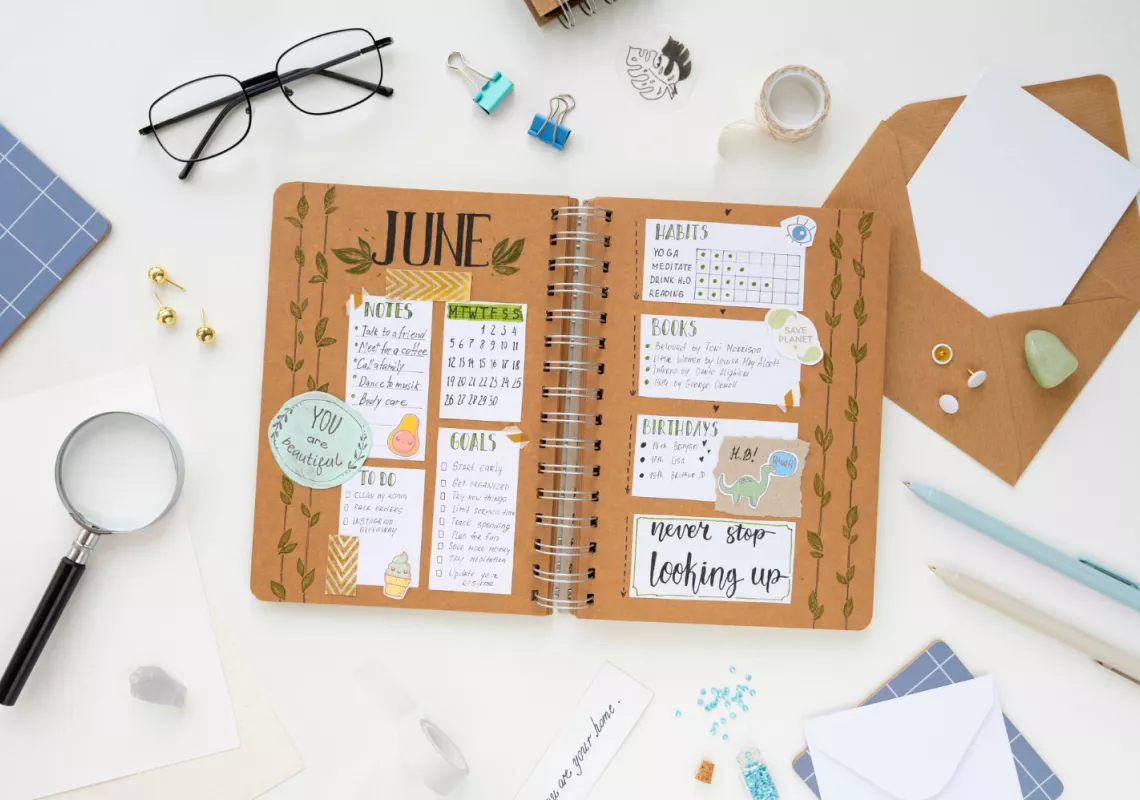 JUNE
NOTES
Talk to a friend
Meet for a coffee
Call a family
Dance to musik
Body care
MTWTFSS
1 2 3 4
5 6 7 8 9 10 11
12 13 14 15 16 17 18
19 20 21 22 23 24 25
26 27 28 29 30
YOU
are
beautiful
TO DO
CLEAN MY ROOM
INSTAGRAM
GIVEAWAY
GOALS
START EARLY
GET ORGANIZED
TRY NEW THINGS
LIMIT SCREEN TIME
TRACK SPENDING
PLAN FOR FUN
SAVE MORE MONEY
TRY MEDITATION
UPDATE YOUR
HABITS
YOGA
MEDITATE
DRINK H2O
READING
BOOKS
Beloved by Toni Morrison
Little Women by Louisa May Alcott
Inferno by Dante Alighieri
1984 by George Orwell
SAVE
PLANET
BIRTHDAYS
17th Lisa
Brother D
H.B!
never stop
looking up
are your home.